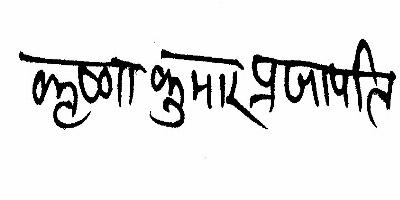 कृष्णा कुमार प्रजापति